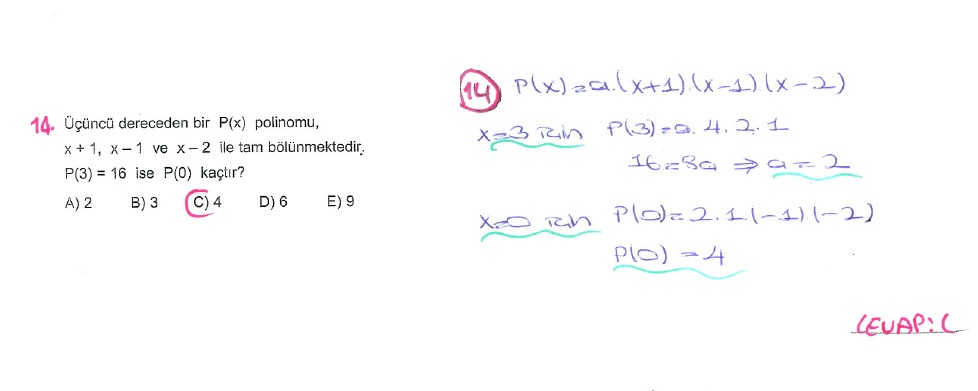 14. Üçüncü dereceden bir P(x) polinomu,
x + 1, x – 1 ve x – 2 ile tam bölünmektedir.
P(3) = 16 ise P(0) kaçtır?
A) 2 B) 3 C) 4 D) 6 E) 9
14 P(x)=a.(x+1).(x-1).(x-2)
x=3 için P(3)=a.4.2.1
16=8a ⇒ a=2
x=0 için P(0)=2.1.(-1).(-2)
P(0)=4
CEVAP: C